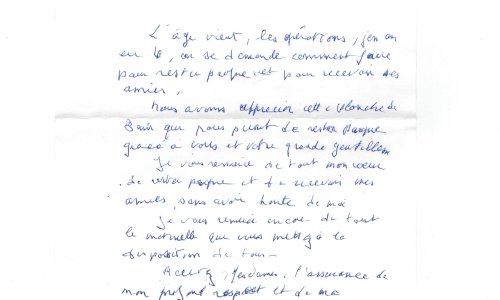 L'âge vient, les opérations, j'en ai
eu 6, on se demande comment faire
pour rester propre et pour recevoir ses
amies.
Nous avons apprécié cette planche de
bain qui nous permet de rester propre
grace a vous et votre grande gentillesse
Je vous remercie de tout mon coeur
de rester propre et de recevoir mes
amies sans avoir honte de moi
Je vous remercie encore de tout
le materielle que vous mettez à la
disposition de tous
Mesdames, l'assurance de
mon profond respect et de ma